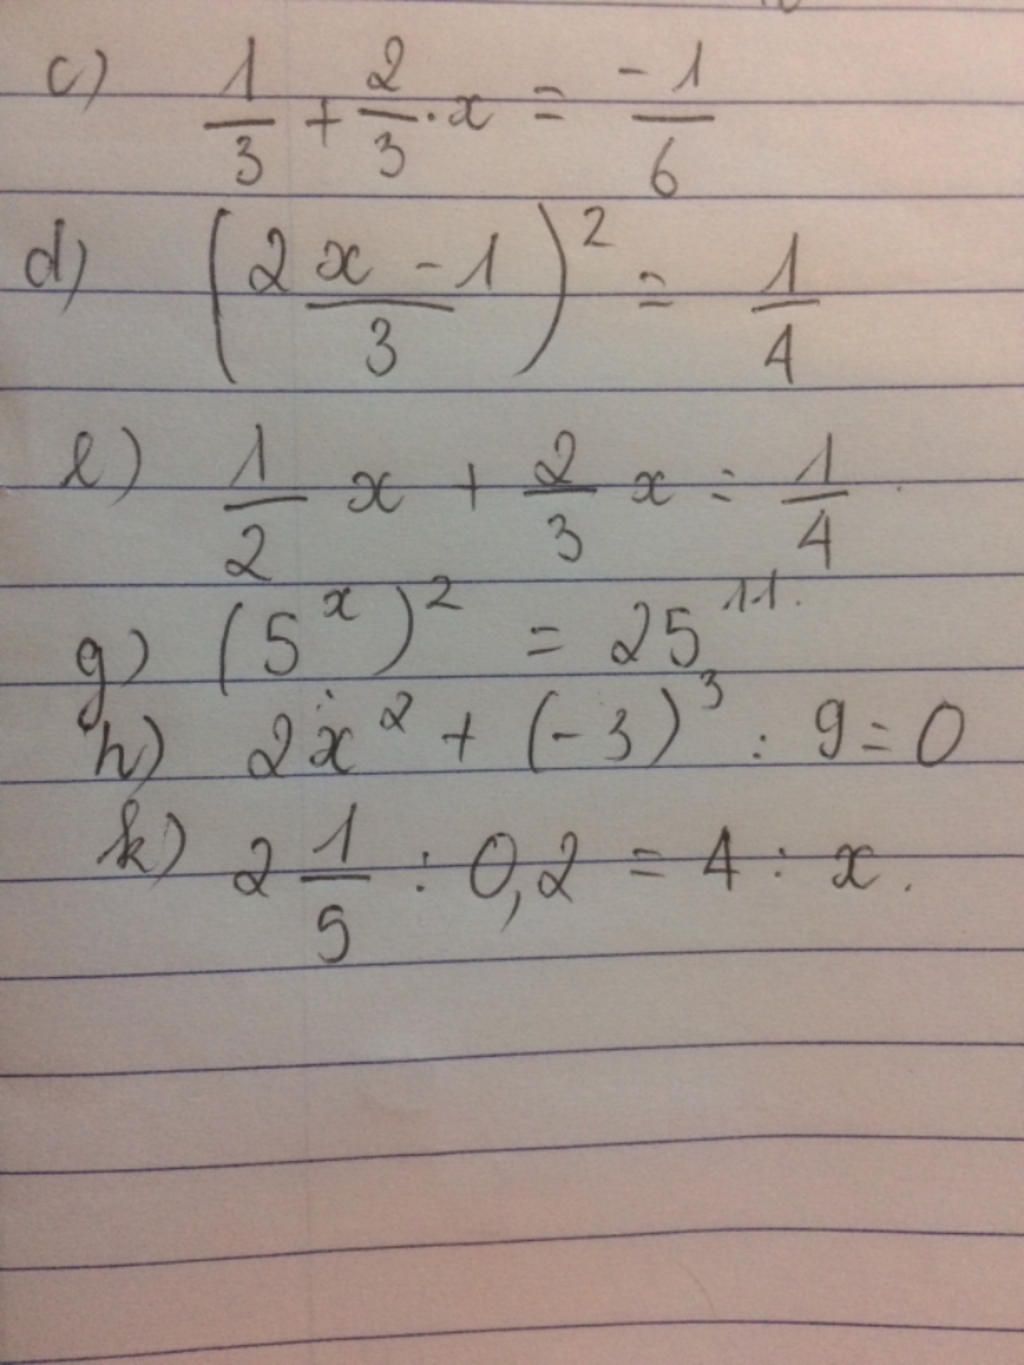 c) 1/3 + 2/3 . x = -1/6
d) (2x - 1 / 3)² = 1/4
e) 1/2 x + 2/3 x = 1/4
g) (5^x)² = 25^11.
h) 2x² + (-3)³ : 9 = 0
k) 2 1/5 : 0,2 = 4 : x.